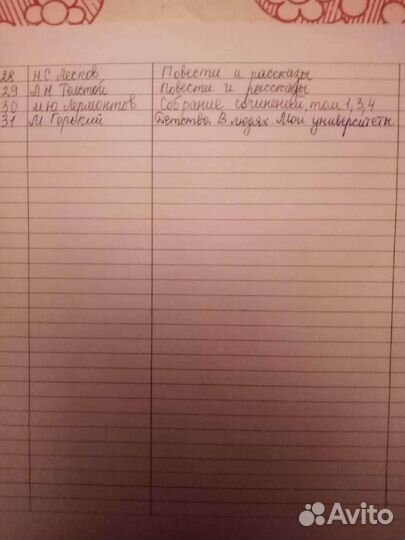 28 Н.С. Лесков Повести и рассказы
29 Л.Н Толстой Повести и рассказы
30 М.Ю Лермонтов Собрание сочинений, том 1,3,4
31 М. Горький Детство. В людях. Мои университеты
Avito